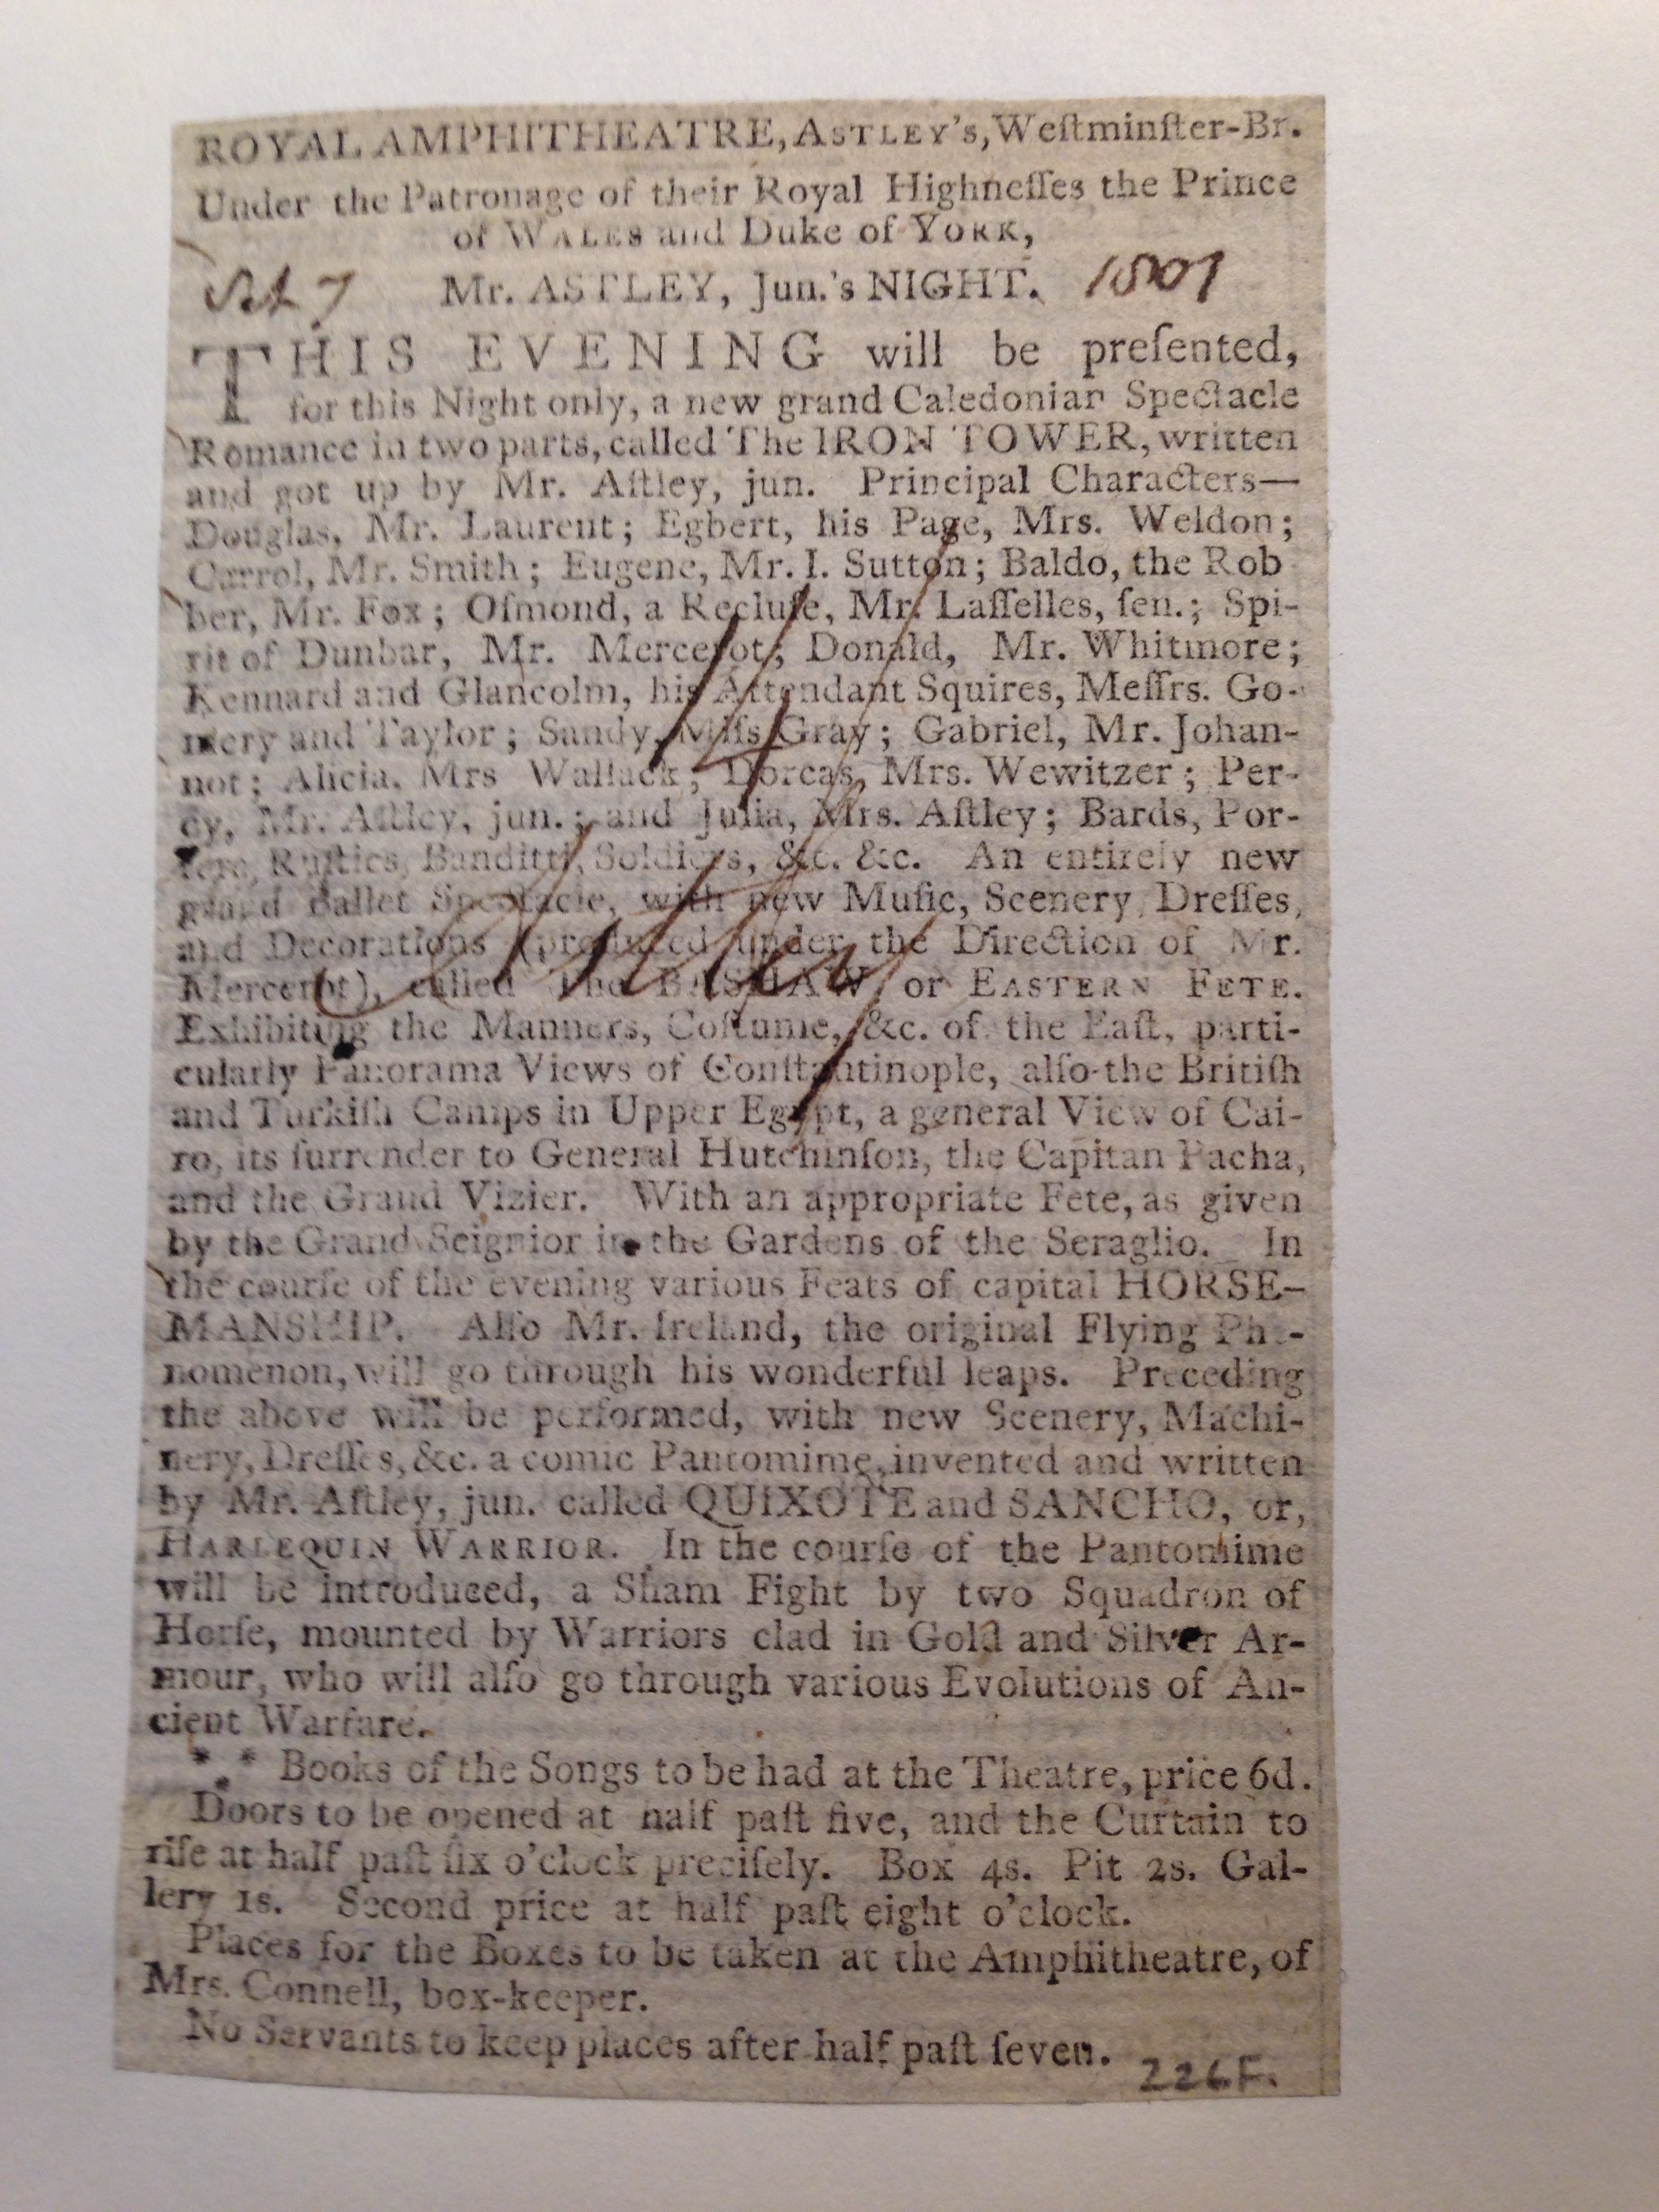 ROYAL AMPHITHEATRE, ASTLEY'S, Weſtminſter-Br.
Under the Patronage of their Royal Highneſſes the Prince
of WALES and Duke of YORK,
7 Mr. ASTLEY, Jun.'s NIGHT. 1801
THIS EVENING will be preſented,
for this Night only, a new grand Caledonian Spectacle
Romance in two parts, called The IRON TOWER, written
and got up by Mr. Aſtley, jun. Principal Characters—
Douglas, Mr. Laurent; Egbert, his Page, Mrs. Weldon;
Carrol, Mr. Smith; Eugene, Mr. I. Sutton; Baldo, the Rob
ber, Mr. Fox; Oſmond, a Recluſe, Mr. Laſſelles, ſen.; Spi-
rit of Dunbar, Mr. Mercerot; Donald, Mr. Whitmore;
Kennard and Glancolm, his Attendant Squires, Meſſrs. Go-
mery and Taylor; Sandy, Miſs Gray; Gabriel, Mr. Johan-
not; Alicia, Mrs Wallack; Dorcas, Mrs. Wewitzer; Per-
cy, Mr. Aſtley, jun.; and Julia, Mrs. Aſtley; Bards, Por-
ters, Ruſtics, Banditti, Soldiers, &c. &c. An entirely new
grand Ballet Spectacle, with new Muſic, Scenery, Dreſſes,
and Decorations (produced under the Direction of Mr.
Mercerot), called The BASHAW, or EASTERN FETE.
Exhibiting the Manners, Coſtume, &c. of the Eaſt, parti-
cularly Panorama Views of Conſtantinople, alſo the Britiſh
and Turkiſh Camps in Upper Egypt, a general View of Cai-
ro, its ſurrender to General Hutchinſon, the Capitan Pacha,
and the Grand Vizier. With an appropriate Fete, as given
by the Grand Seignior in the Gardens of the Seraglio. In
the courſe of the evening various Feats of capital HORSE-
MANSHIP. Alſo Mr. Ireland, the original Flying Phe-
nomenon, will go through his wonderful leaps. Preceding
the above will be performed, with new Scenery, Machi-
nery, Dreſſes, &c. a comic Pantomime, invented and written
by Mr. Aſtley, jun. called QUIXOTE and SANCHO, or,
HARLEQUIN WARRIOR. In the courſe of the Pantomime
will be introduced, a Sham Fight by two Squadron of
Horſe, mounted by Warriors clad in Gold and Silver Ar-
mour, who will alſo go through various Evolutions of An-
cient Warfare.
*.* Books of the Songs to be had at the Theatre, price 6d.
Doors to be opened at half paſt five, and the Curtain to
riſe at half paſt ſix o'clock preciſely. Box 4s. Pit 2s. Gal-
lery 1s. Second price at half paſt eight o'clock.
Places for the Boxes to be taken at the Amphitheatre, of
Mrs. Connell, box-keeper.
No Servants to keep places after half paſt ſeven.
226F.